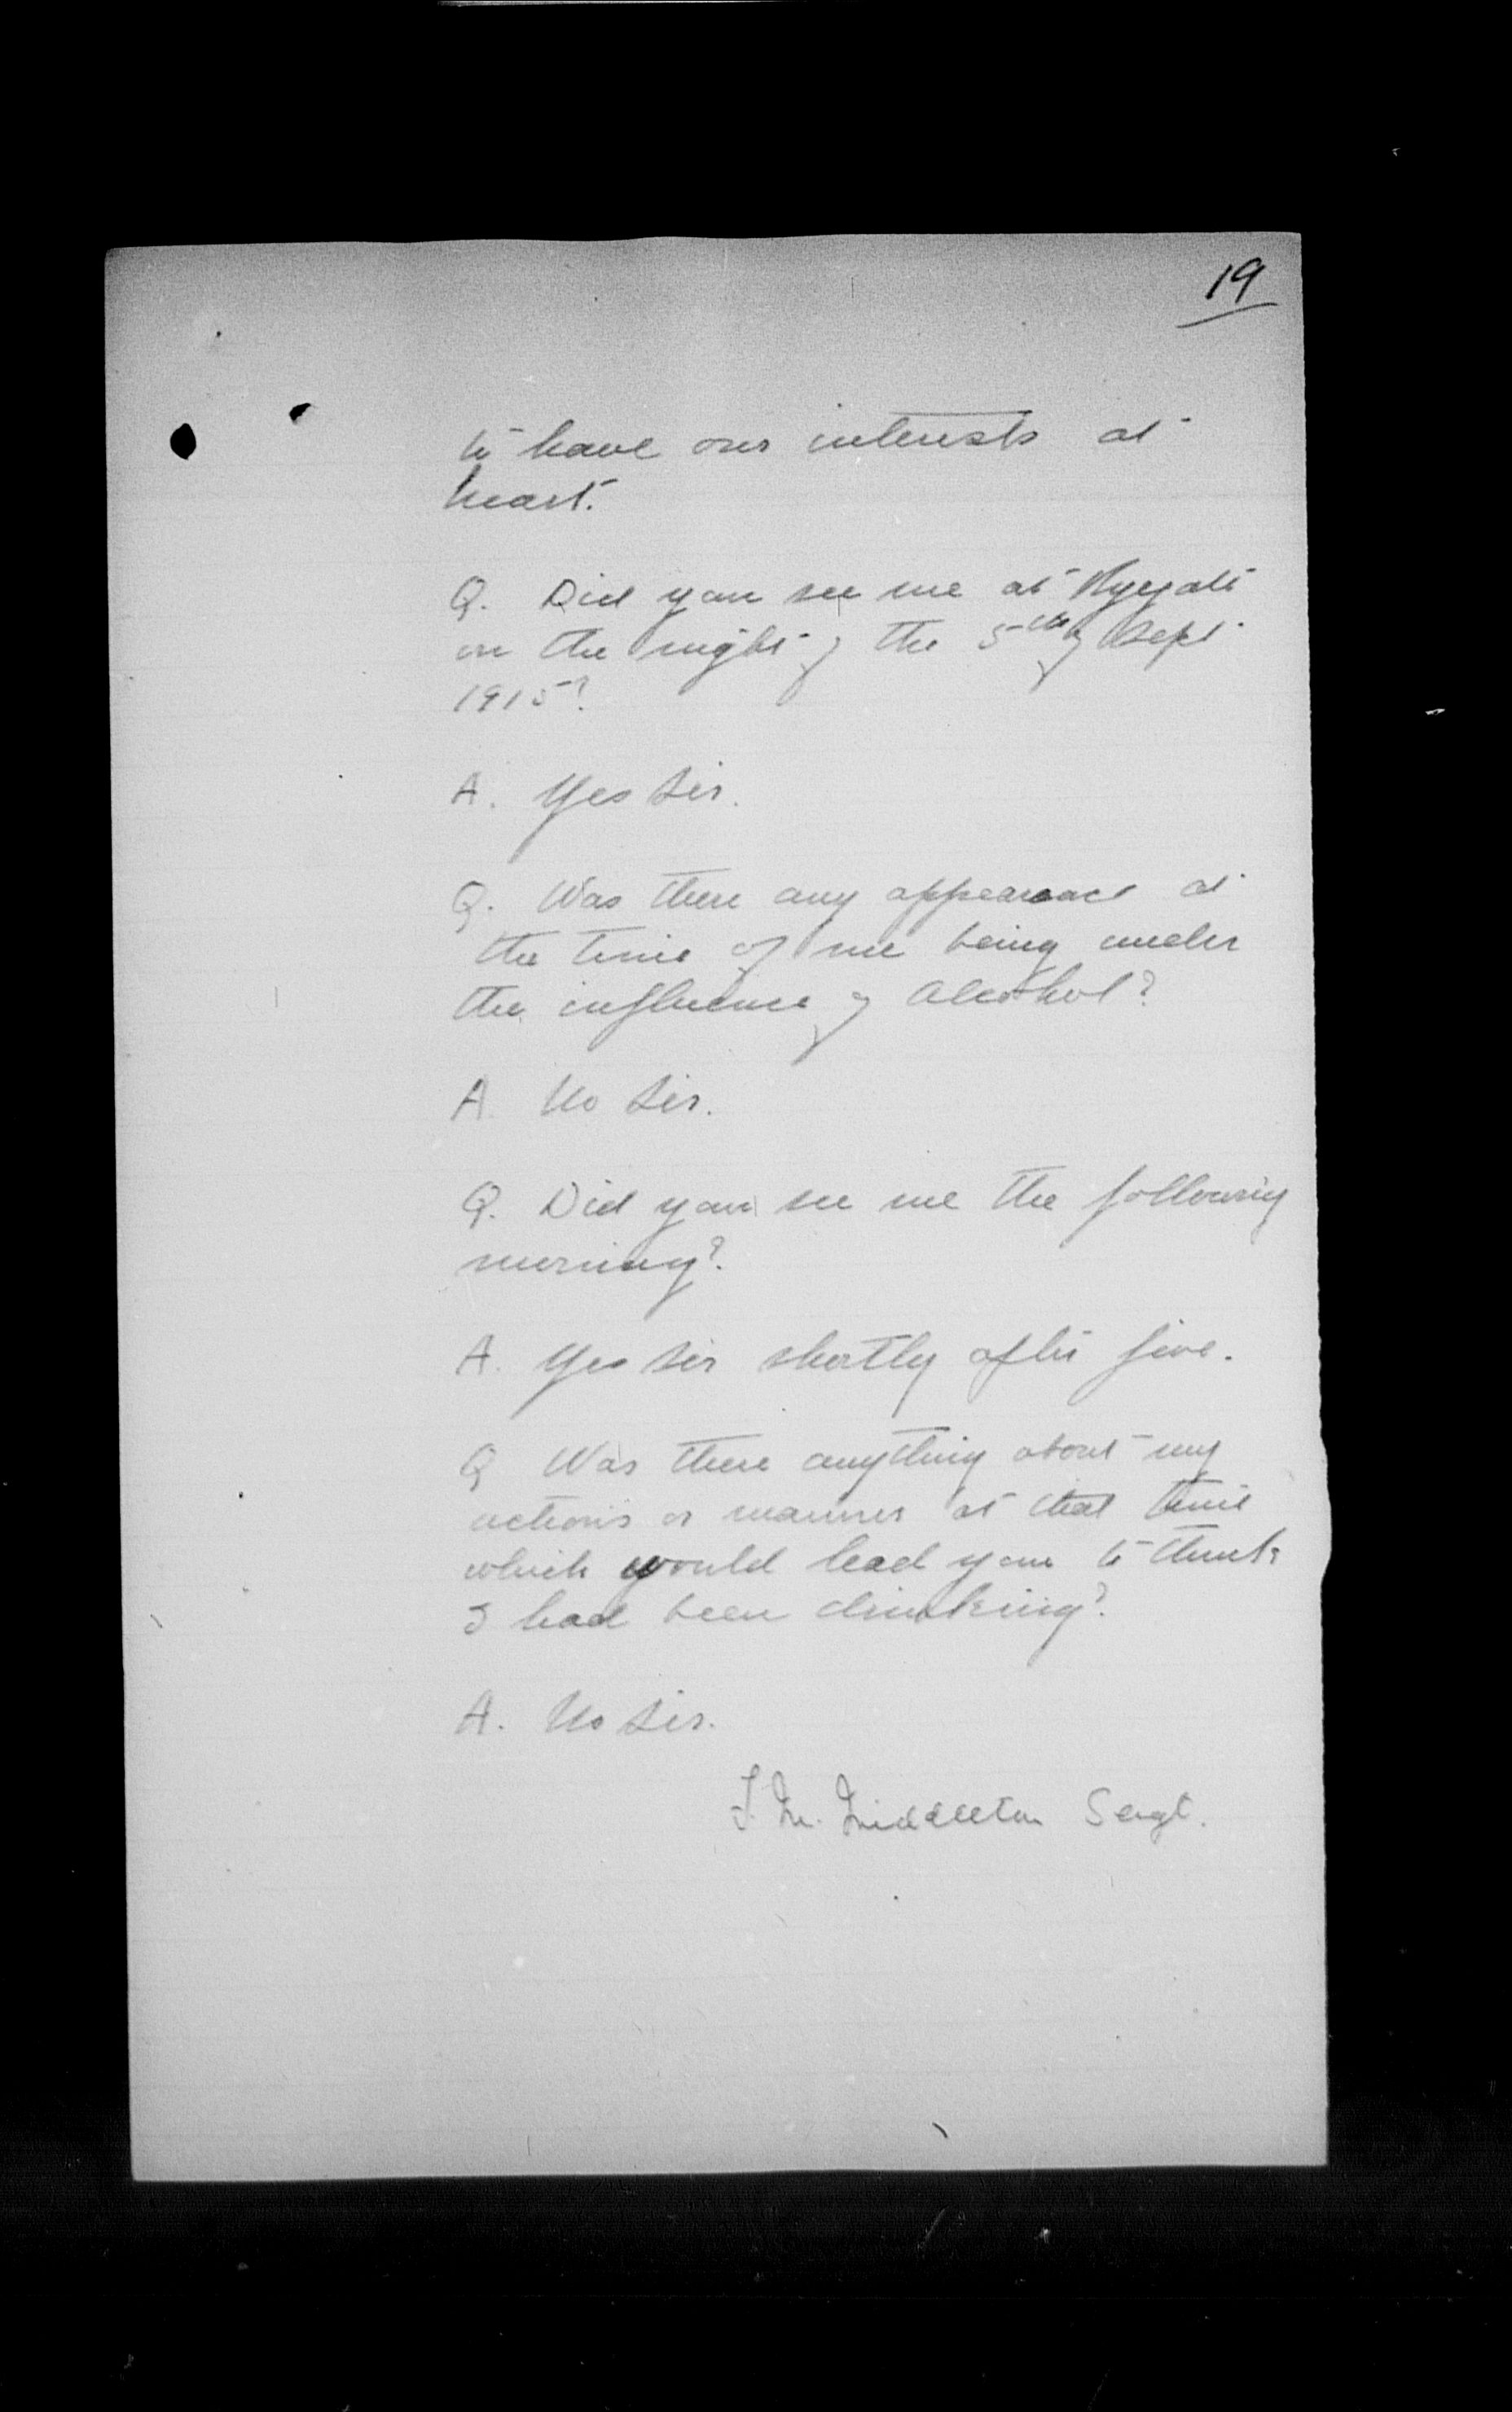 19
to have our interests at
heart.
Q. Did you see me at Hygate
on the night of the 5th of Sept
1915?
A. Yes Sir.
Q. Was there any appearance at
the time of me being under
the influence of Alcohol?
A. No Sir.
Q. Did you see me the following
morning?
A. Yes Sir shortly after five.
Q Was there anything about my
actions or manner at that time
which would lead you to think
I had been drinking?
A. No Sir.
J. M. Middleton Sergt.